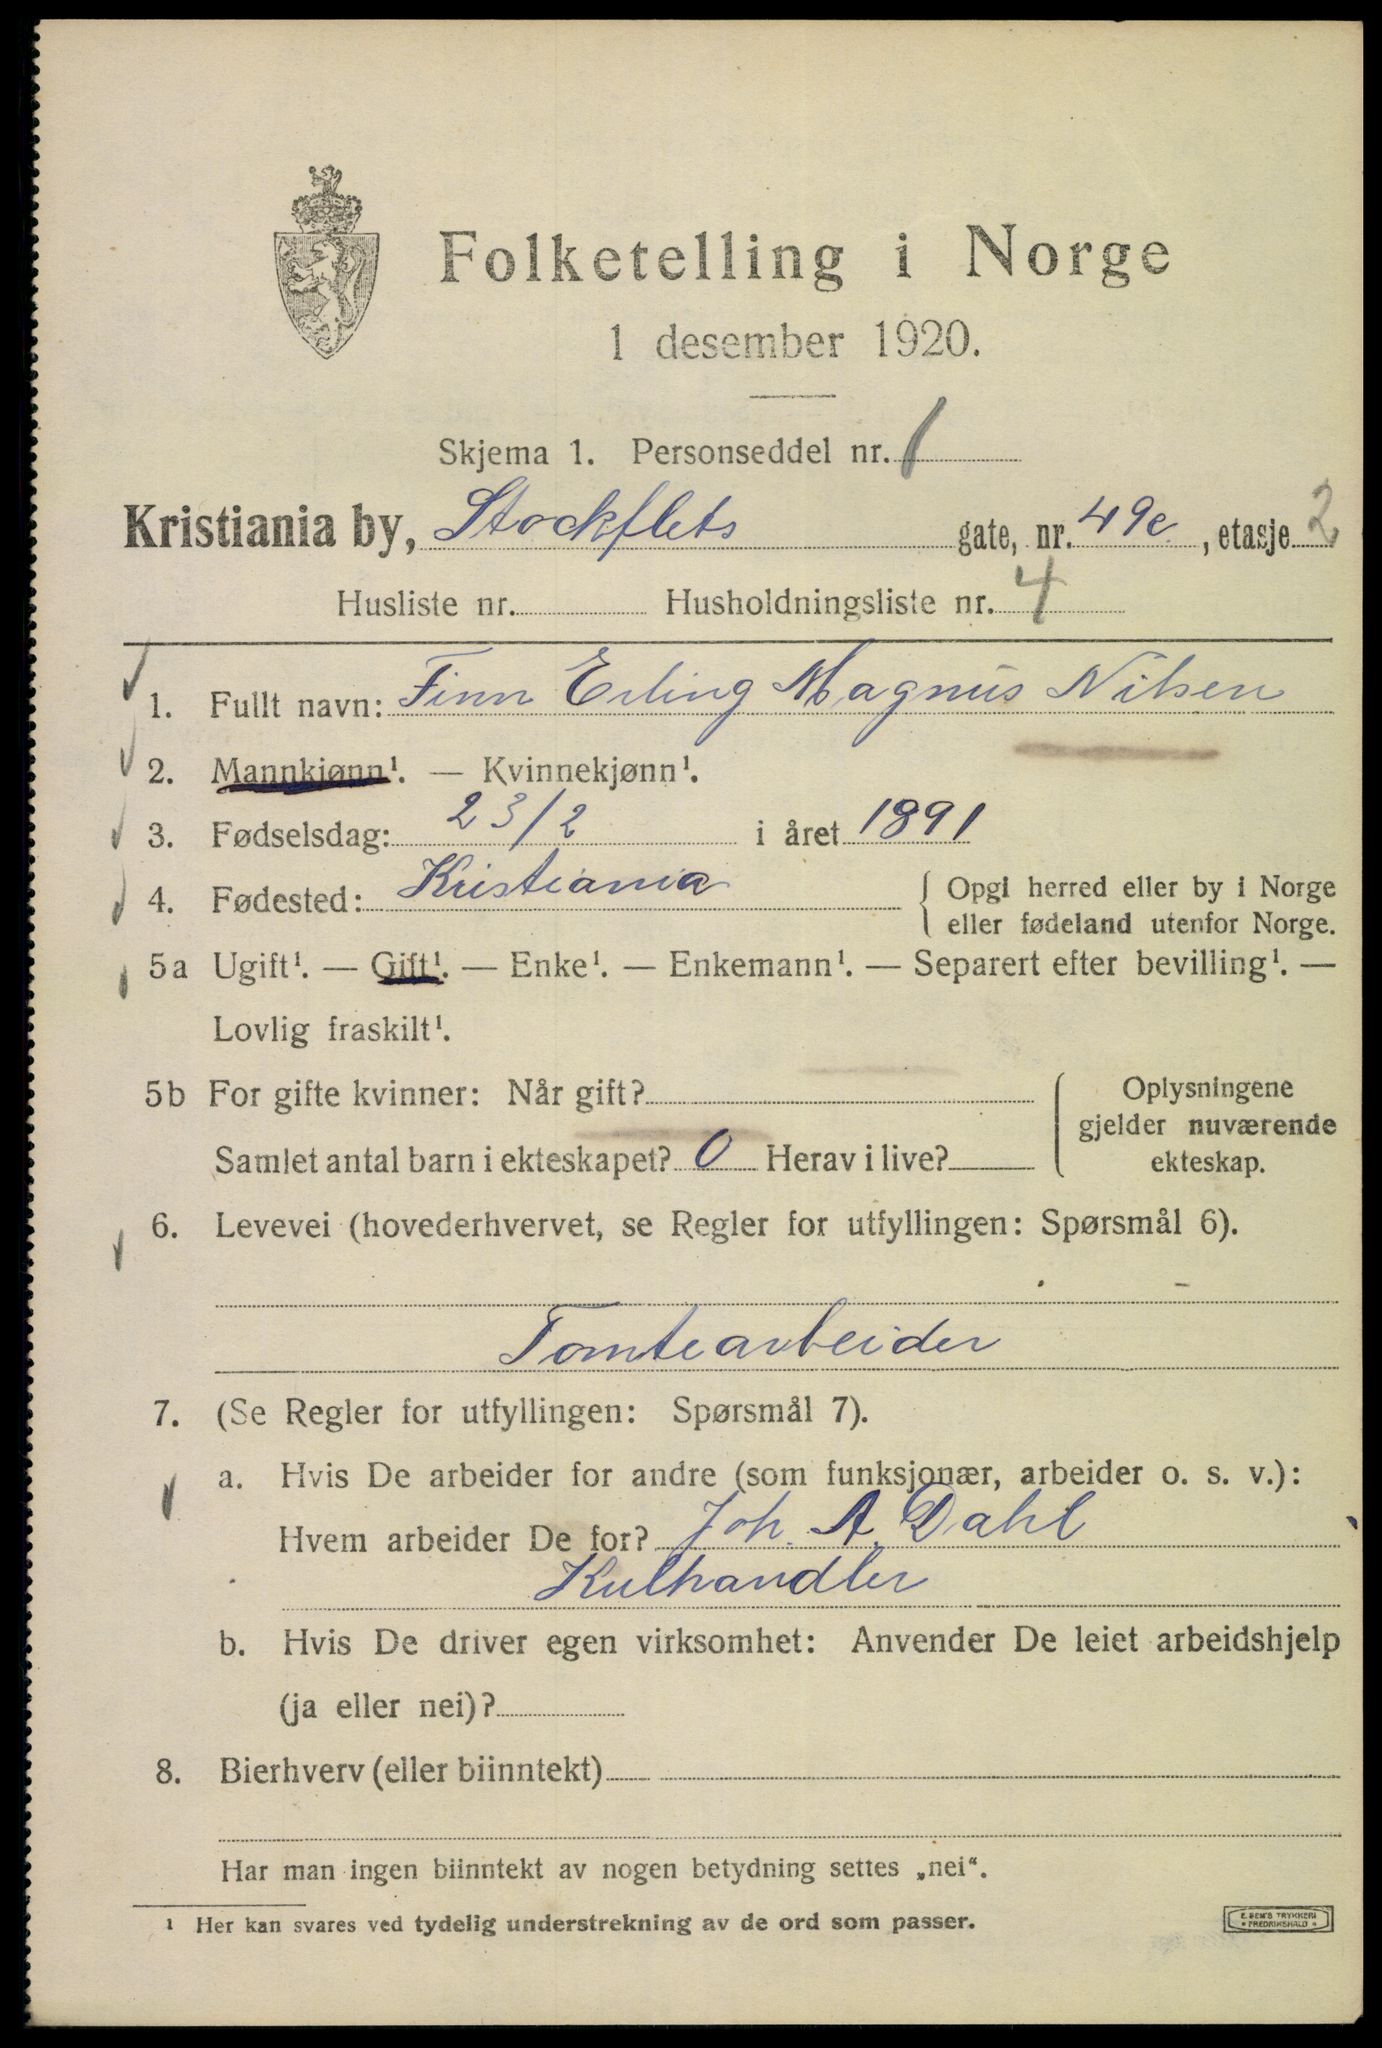 Folketelling i Norge
1 desember 1920.
Skjema 1. Personseddel nr. 1
Kristiania by, Stockflets gate, nr. 49e, etasje 2
Husliste nr. Husholdningsliste nr. 4
1. Fullt navn: Finn Erling Magnus Nilsen
2. Mannkjønn¹. — Kvinnekjønn¹.
3. Fødselsdag: 23/2 i året 1891
4. Fødested: Kristiania { Opgi herred eller by i Norge
eller fødeland utenfor Norge.
5a Ugift¹. — Gift¹. — Enke¹. — Enkemann¹. — Separert efter bevilling¹. —
Lovlig fraskilt¹.
5b For gifte kvinner: Når gift? Oplysningene
gjelder nuværende
Samlet antal barn i ekteskapet? 0 Herav i live? ekteskap.
6. Levevei (hovederhvervet, se Regler for utfyllingen: Spørsmål 6).
Tomtearbeider
7. (Se Regler for utfyllingen: Spørsmål 7).
a. Hvis De arbeider for andre (som funksjonær, arbeider o. s. v.):
Hvem arbeider De for? Joh. A. Dahl
Kulhandler
b. Hvis De driver egen virksomhet: Anvender De leiet arbeidshjelp
(ja eller nei)?
8. Bierhverv (eller biinntekt) —
Har man ingen biinntekt av nogen betydning settes „nei“.
¹ Her kan svares ved tydelig understrekning av de ord som passer.
E. SEM'S TRYKKERI
* FREDRIKSHALD *